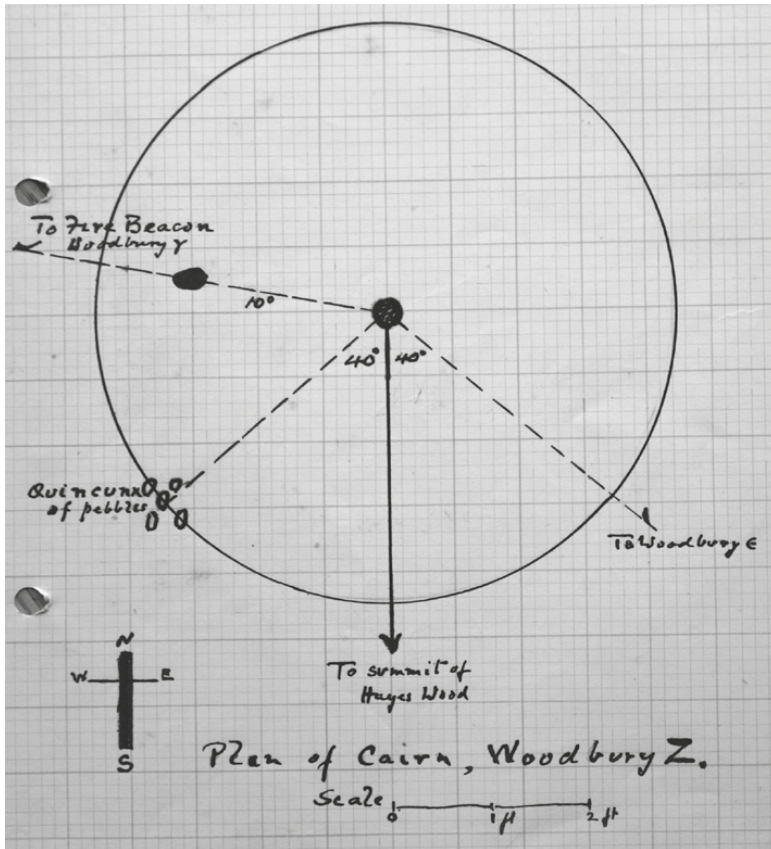 To Fire Beacon
Woodbury γ
10°
40° 40°
Quincunx
of pebbles
To Woodbury ϵ
To summit of
Hayes Wood
N
W E
S
Plan of Cairn, Woodbury Z.
Scale
0 1 ft 2 ft